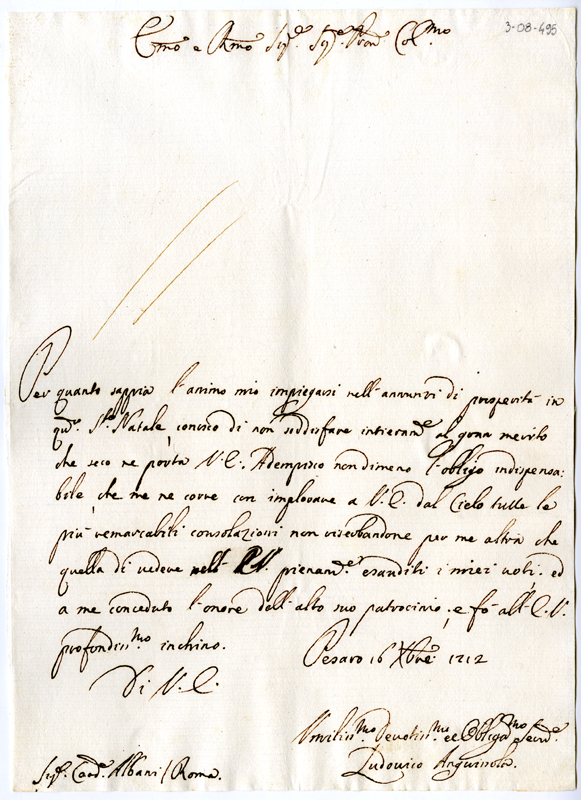 3-08-495
Emo e Rmo Sig.e Sig.e Pron Col.mo
Per quanto sappia l'animo mio impiegarsi nell'annunzi di prosperità in
q.to S.to Natale conosco di non soddisfare intieram.e al gran merito
che seco ne porta V.E. Adempisco nondimeno l'obligo indispensa:
bile che me ne corre con implorare a V.E. dal Cielo tutte le
più remarcabili consolazioni non riserbandone per me altra che
quella di vedere nell' E.V. pienam.e esauditi i miei voti, ed
a me conceduto l'onore dell'alto suo patrocinio, e fo all'E.V.
profondiss.mo inchino.
Pesaro 16 Xbre 1712
Di V.E.
Umiliss.mo Devotiss.mo et Obliga.mo Serv.e
Ludovico Anguissola.
Sig.e Card. Albani / Roma.